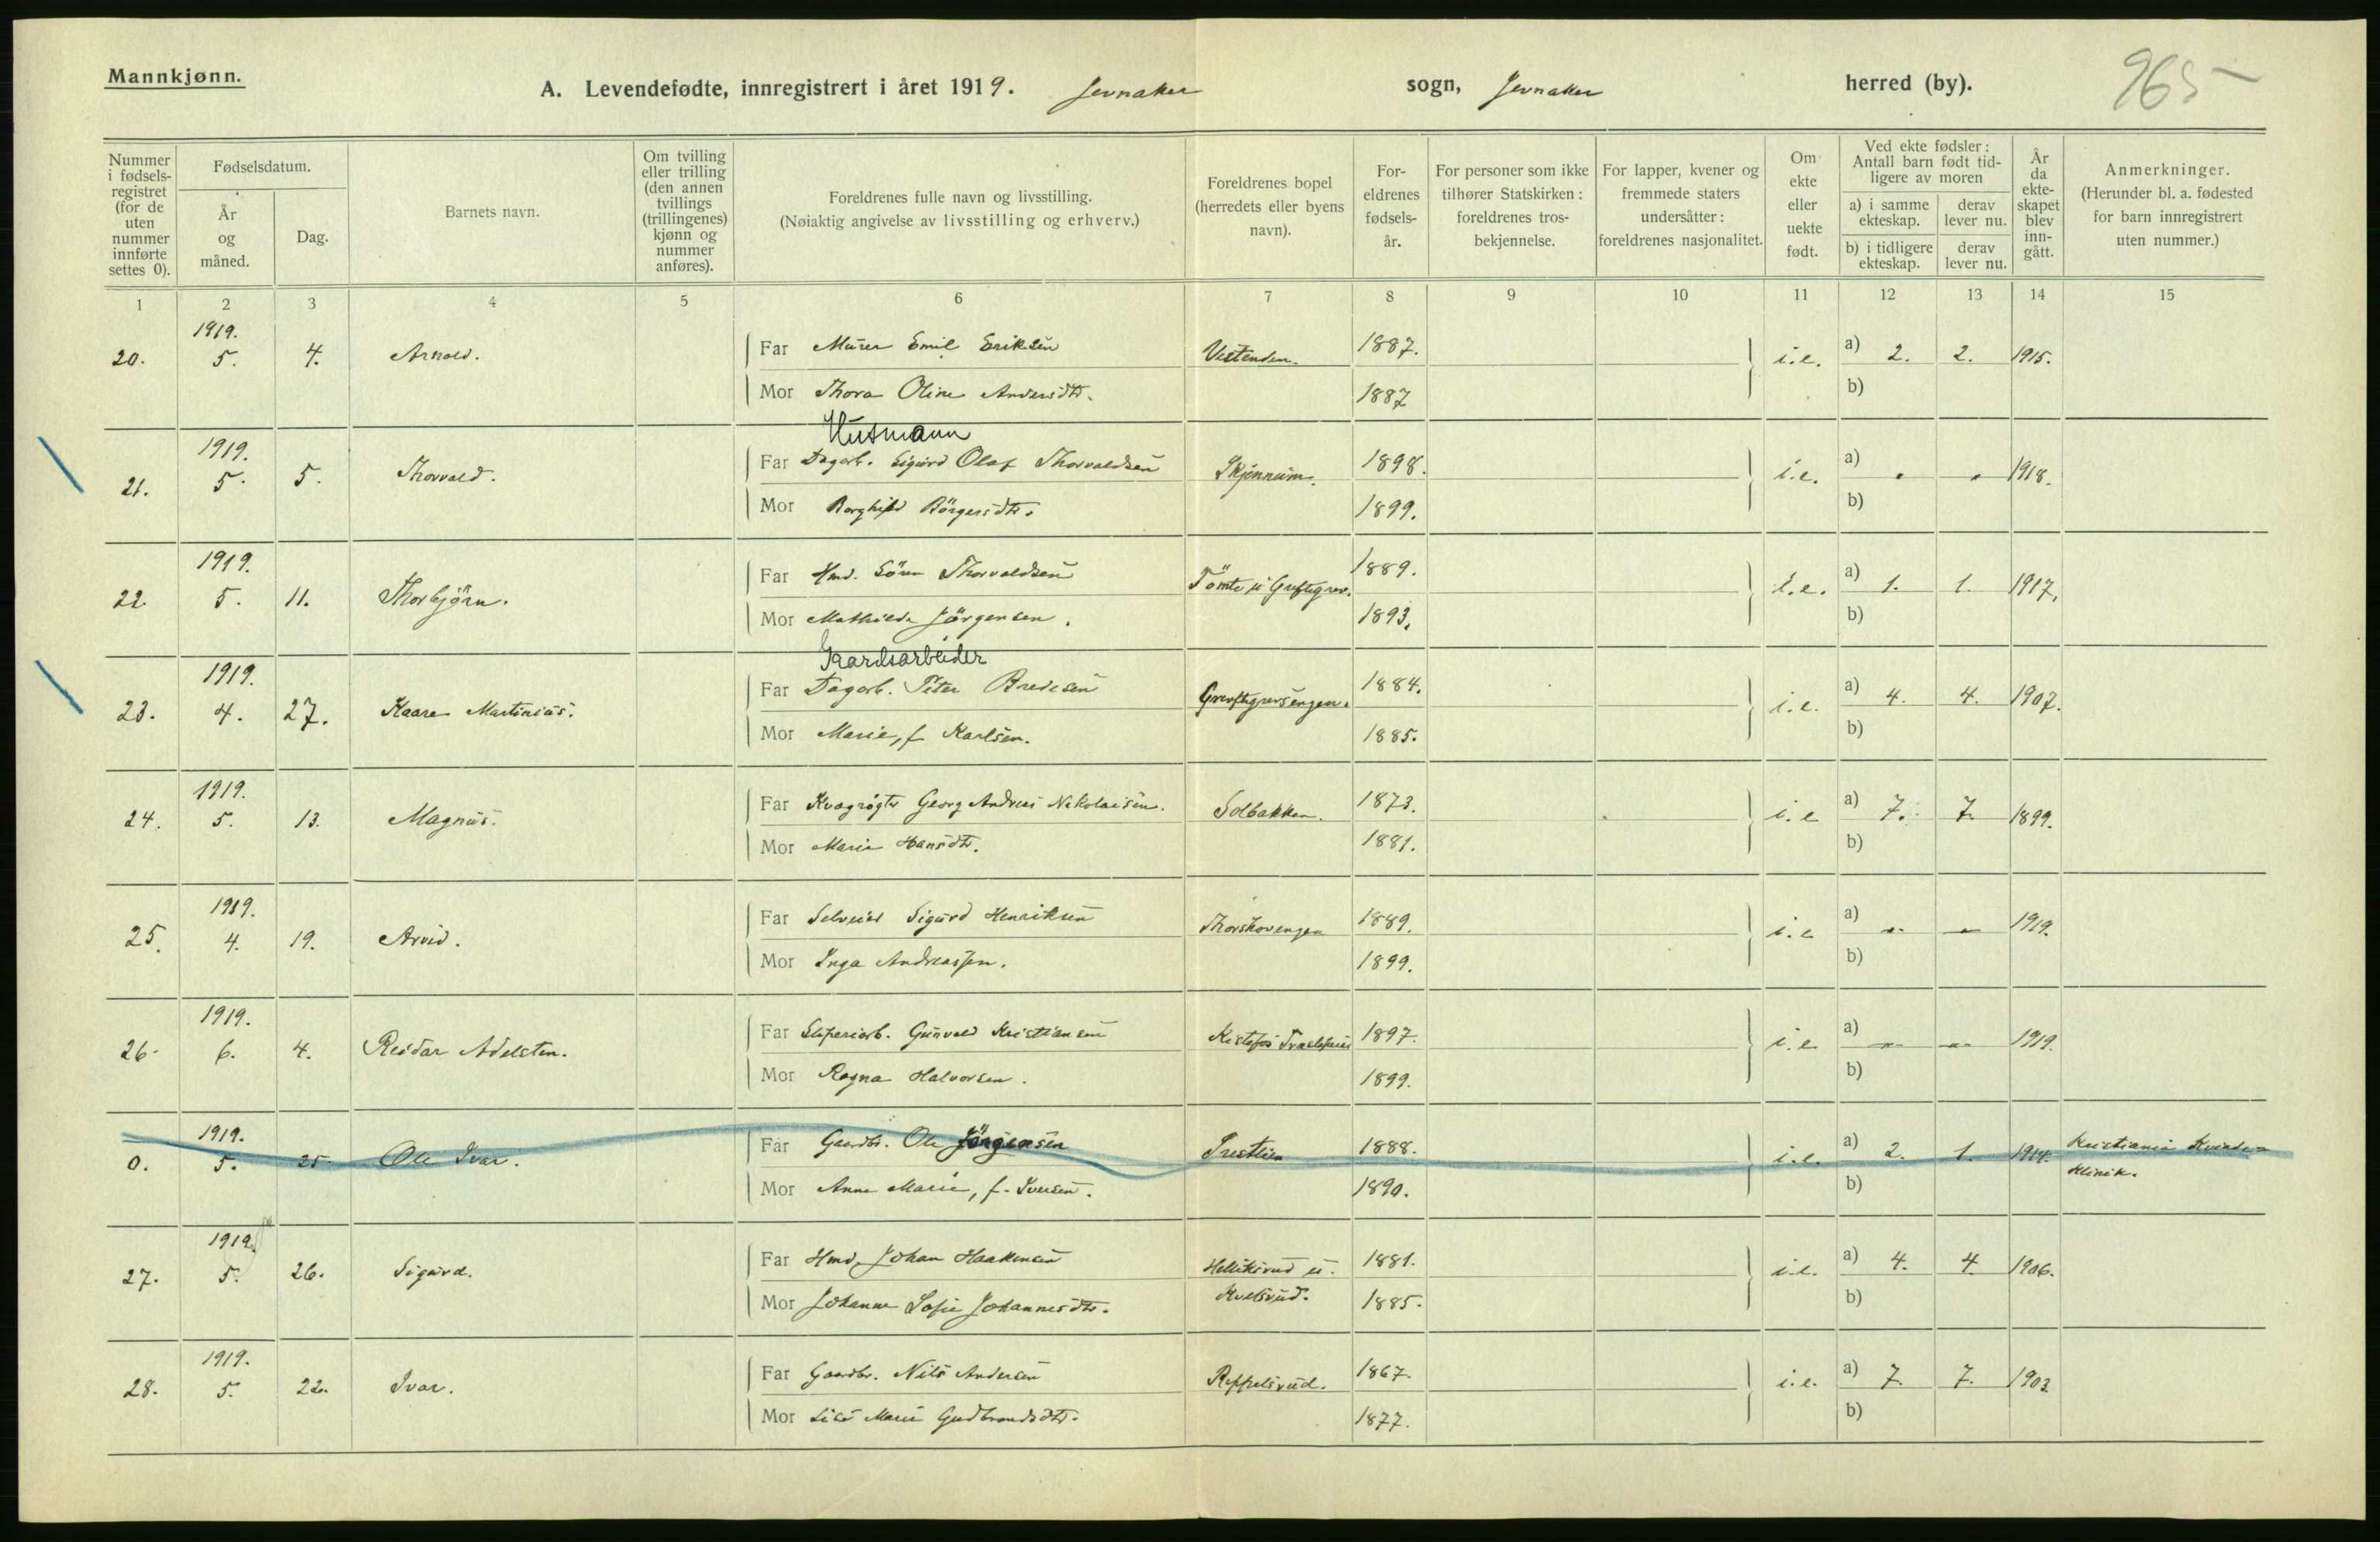 Mannkjønn.
A. Levendefødte, innregistrert i året 1919. Jevnaker sogn, Jevnaker herred (by). 965
Nummer i fødselsregistret (for de uten nummer innførte settes 0).
Fødselsdatum.
År og måned.
Dag.
Barnets navn.
Om tvilling eller trilling (den annen tvillings (trillingenes) kjønn og nummer anføres).
Foreldrenes fulle navn og livsstilling.
(Nøiaktig angivelse av livsstilling og erhverv.)
Foreldrenes bopel (herredets eller byens navn).
Foreldrenes fødselsår.
For personer som ikke tilhører Statskirken: foreldrenes trosbekjennelse.
For lapper, kvener og fremmede staters undersåtter: foreldrenes nasjonalitet.
Om ekte eller uekte født.
Ved ekte fødsler: Antall barn født tidligere av moren
a) i samme ekteskap. derav lever nu.
b) i tidligere ekteskap. derav lever nu.
År da ekteskapet blev inngått.
Anmerkninger.
(Herunder bl. a. fødested for barn innregistrert uten nummer.)
1 2 3 4 5 6 7 8 9 10 11 12 13 14 15
20. 1919. 5. 4. Arnold. Far Murer Emil Eriksen Vestenden. 1887. i.e. a) 2. 2. 1915.
Mor Thora Oline Andersdtr. 1887 b)
Husmann
21. 1919. 5. 5. Thorvald. Far Dagarb. Sigurd Olaf Thorvaldsen Skjennum. 1898. i.e. a) " " 1918.
Mor Borghild Börgersdtr. 1899. b)
22. 1919. 5. 11. Thorbjörn. Far Hmd. Sören Thorvaldsen Tömte u Greftegrev. 1889. i.e. a) 1. 1. 1917.
Mor Mathilde Jörgensen. 1893. b)
Gaardsarbeider
23. 1919. 4. 27. Kaare Martinius. Far Dagarb. Peter Bredesen Greftegrevsengen. 1884. i.e. a) 4. 4. 1907.
Mor Marie, f. Karlsen. 1885. b)
24. 1919. 5. 13. Magnus. Far Kvægrögter Georg Andreas Nikolaisen. Solbakken. 1873. i.e a) 7. 7. 1899.
Mor Marie Hansdtr. 1881. b)
25. 1919. 4. 19. Arvid. Far Selveier Sigurd Henriksen Thorshovengen 1889. i.e a) " " 1919.
Mor Inga Andreassen. 1899. b)
26. 1919. 6. 4. Reidar Adelsten. Far Sliperiarb. Gunvald Kristiansen Kistefos Træsliperi 1897. i.e a) " " 1919.
Mor Ragna Halvorsen. 1899. b)
0. 1919. 5. 25. Ole Ivar. Far Gaardbr. Ole Jörgensen Prestlien 1888. i.e. a) 2. 1. 1914. Kristiania Kvinde-
Mor Anne Marie, f. Iversen. 1890. b) klinik.
27. 1919. 5. 26. Sigurd. Far Hmd. Johan Haakensen Helliksrud u. 1881. i.e. a) 4. 4 1906.
Mor Johanne Sofie Johannesdtr. 1885. b)
28. 1919. 5. 22. Ivar. Far Gaardbr. Nils Andersen 1867. i.e. a) 7. 7. 1903.
Mor Lise Marie Gudbrandsdtr. 1877. b)